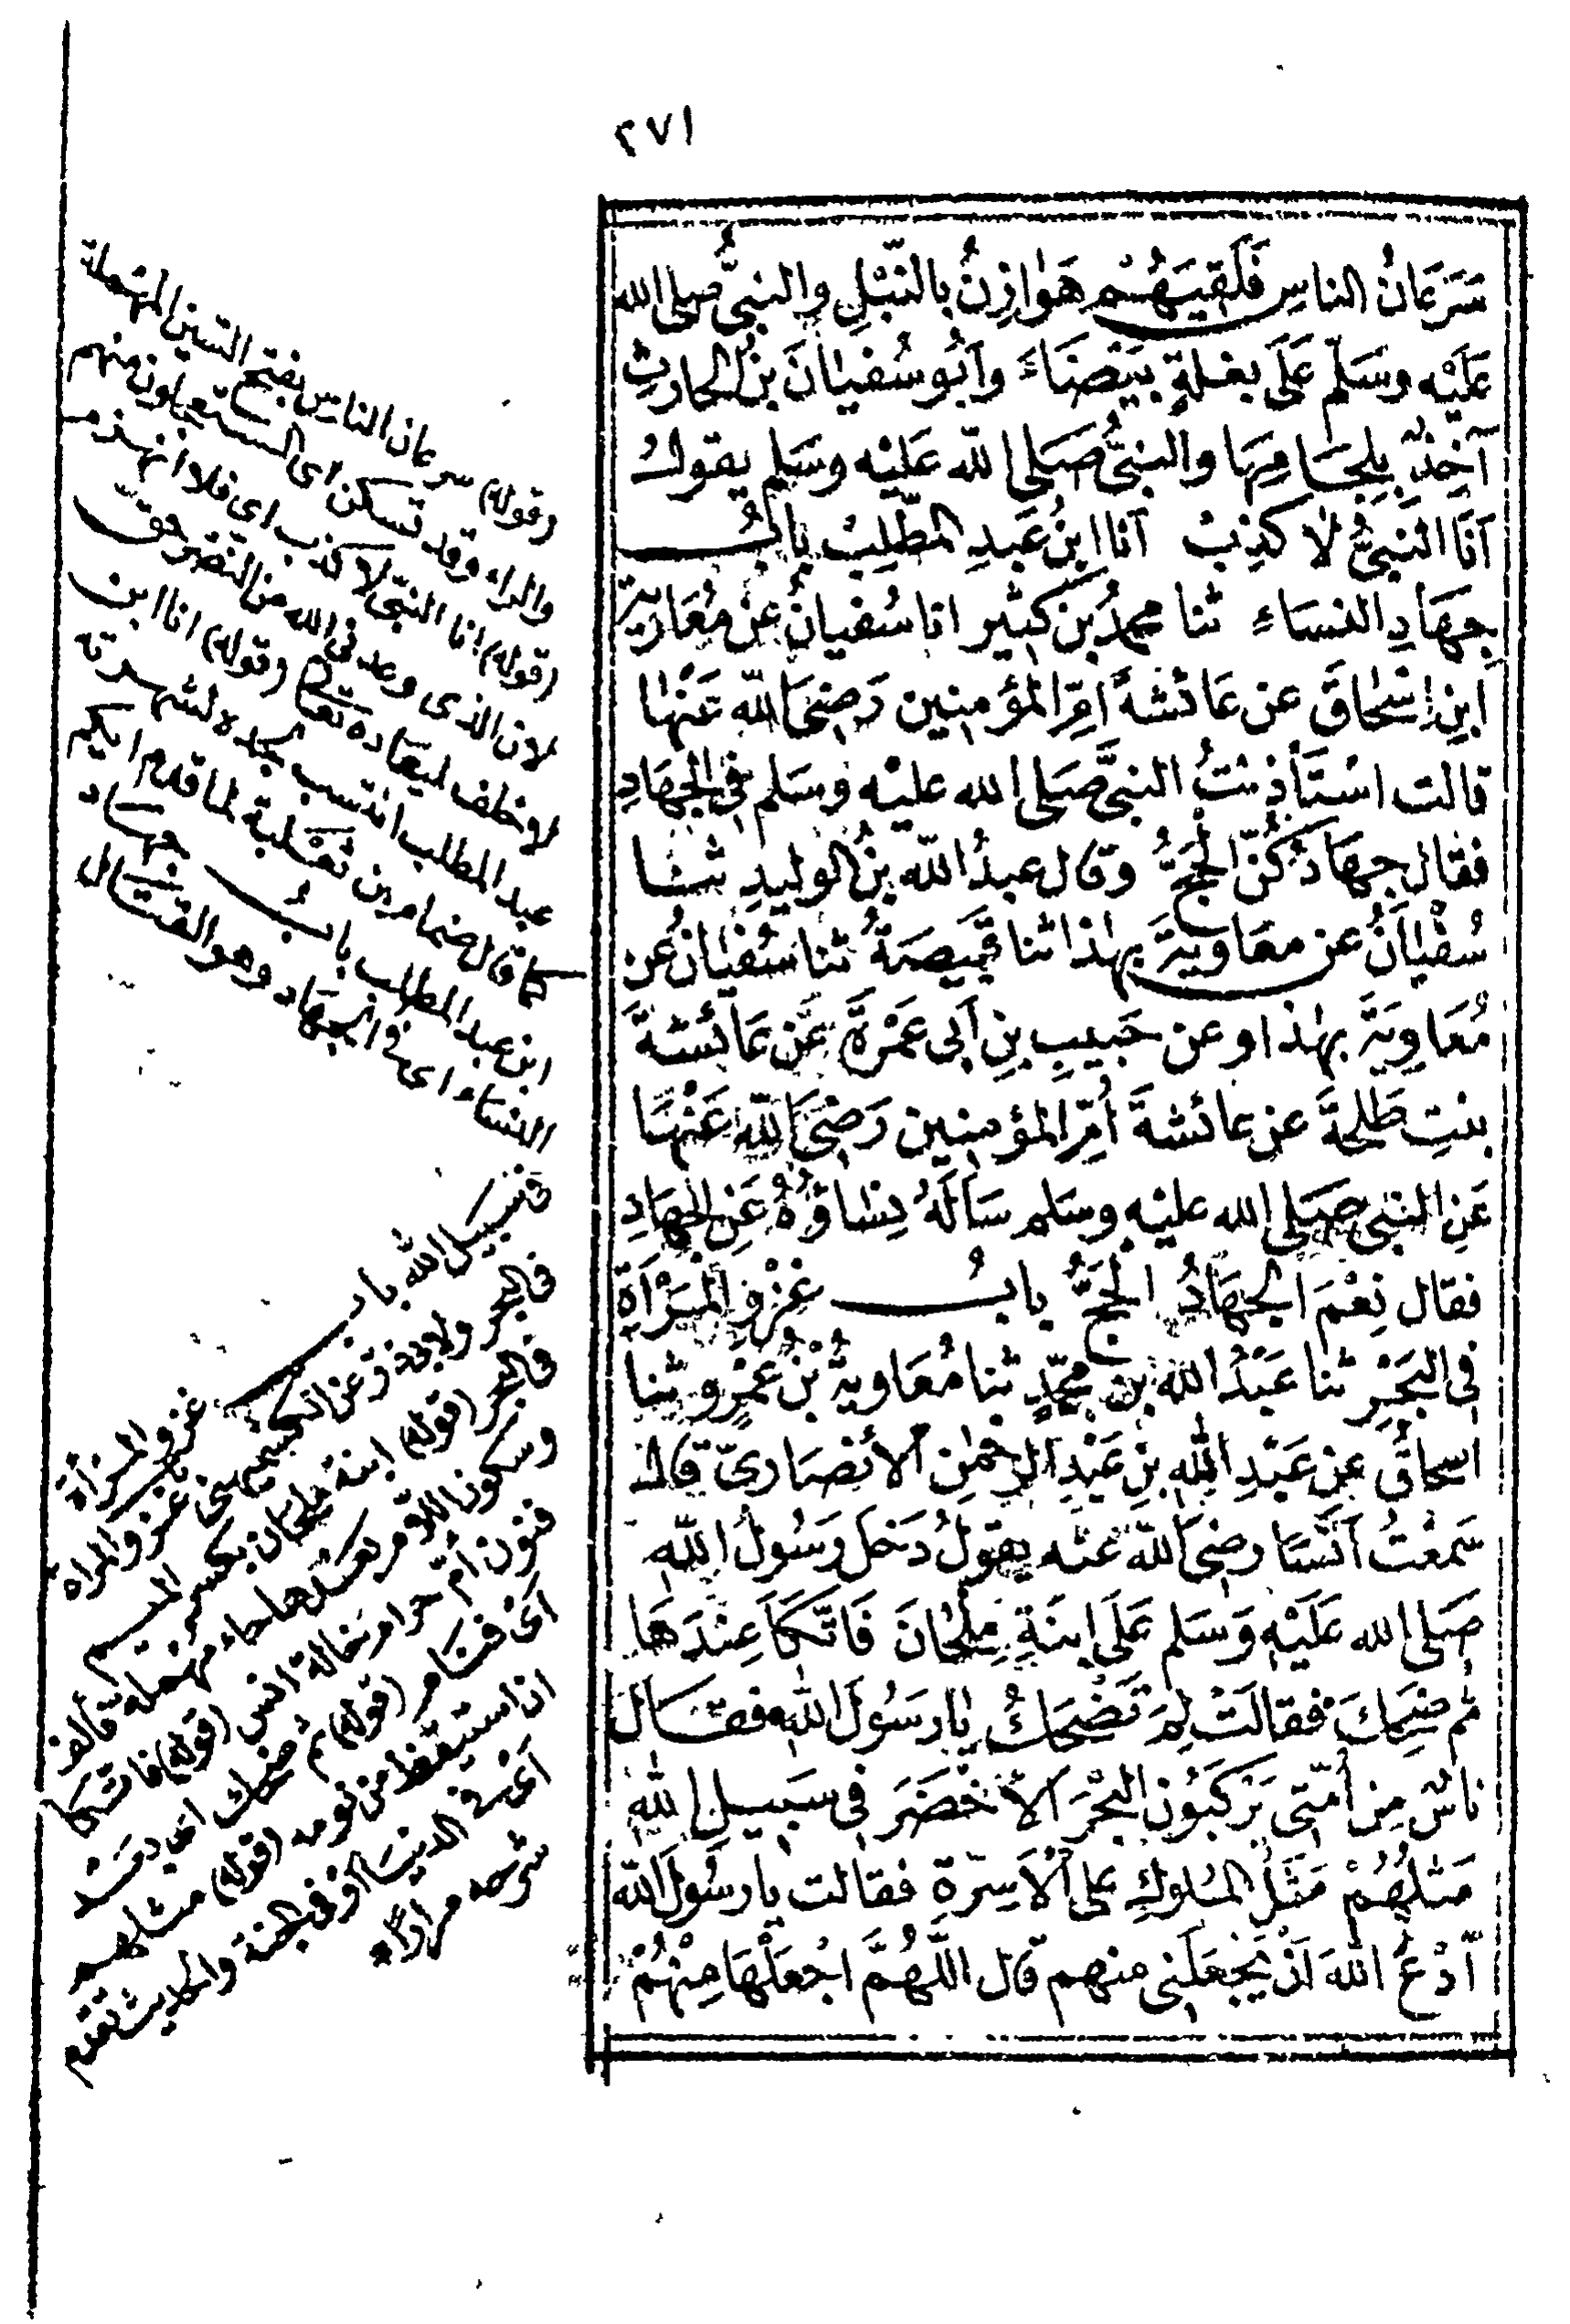 ٢٧١
سَرَعَانُ الناسِ فَلَقِيَهُمْ هَوَازِنُ بالنَّبْلِ والنبىُّ صلى الله
عَلَيْه وسَلَّم عَلَى بغلةٍ بَيْضَاءَ وأَبُو سُفيانَ بنُ الحارثِ
آخِذٌ بِلِجَامِهَا والنبىُّ صَلى اللّه عَلَيْه وسَلم يقولُ
أنَا النَّبِىُّ لا كَذِبْ أنا ابنُ عَبدِ المطَّلِبْ بابُ
جِهَادِ النسَاءِ ثنا محمدُ بن كثير انا سُفيانُ عن مُعَاوِيَةَ
ابنِ إسْحَاقَ عن عَائشةَ أُمِّ المؤمنين رَضِىَ اللّه عَنْهَا
قالت اسْتَأْذَنْتُ النبىَّ صَلى الله عليْه وسَلم فى الجِهَادِ
فقال جِهَادُكُنَّ الحَجُّ وقال عبدُ اللّه بنُ الوليدِ ثنا
سُفْيَانُ عن معَاويةَ بهذا ثنا قَبِيصَةُ ثنا سُفْيَانُ عن
مُعَاوِيَةَ بهذا وعن حَبيبِ بنِ أبى عَمْرَةَ عَن عَائشةَ
بنتِ طَلحةَ عن عائشةَ أُمِّ المؤمنين رَضِىَ اللّه عَنْهَا
عَنِ النبى صَلى الله عليْه وسَلم سَألَهُ نِسَاؤُهُ عَنِ الجِهَادِ
فقال نِعْمَ الجِهَادُ الحَجُّ بابُ غَزْوِ المَرْأَةِ
فى البَحْرِ ثنا عَبْدُ الله بن محمّدٍ ثنا مُعَاويةُ بْنُ عَمْرٍو ثنا
اسحاقَ عن عَبْدِ اللهِ بنِ عَبْدِ الرحمٰنِ الأنصَارىّ قال
سَمعْتُ أنَسًا رضِىَ اللّه عنه يقولُ دَخَل رَسُولُ اللّهِ
صَلى الله عَلَيْهِ وَسَلم عَلَى ابنَةِ مِلْحَانَ فَاتَّكَأَ عِنْدَهَا
ثم ضَحِكَ فقالَتْ لِمَ تَضْحَكُ يا رَسُولَ اللهِ فقال
ناسٌ مِن أُمّتى يَرْكَبُونَ البَحْرَ الأَخْضَرَ فى سَبيلِ اللهِ
مَثلُهُمْ مَثَلُ المُلوكِ على الأَسِرّةِ فقالت يا رسُولَ اللّه
ادْعُ اللّهَ أنْ يَجْعَلَنى منهم قال اللَّهُمَّ اجْعَلْهَا مِنْهُمْ
(قوله) سرعان الناس بفتح السين المهملة
والراء وقد تسكن اى المستعجلون منهم
(قوله) انا النبى لا كذب اى فلا انهزم
لان الذى وعدنى الله من النصر حق
لا خلف لميعاده تعالى (قوله) انا ابن
عبد المطلب انتسب لجده لشهرته
كما قال ضمام بن ثعلبة لما قدم ايكم
ابن عبد المطلب باب جهاد
النساء اى فى الجهاد وهو القتال
فى سبيل الله باب غزو المرأة
فى البحر ولابى ذر عن الكشميهنى غزو المرأة
فى البحر (قوله) ابنة ملحان بكسر الميم
وسكون اللام بعدها حاء مهملة فألف
فنون أم حرام خالة انس (قوله) فاتكأ
أى فنام (قوله) ثم ضحك اى بعد
ان استيقظ من نومه (قوله) مثلهم
أى فى الدنيا أو فى الجنة والحديث تقدم
شرحه مرارا